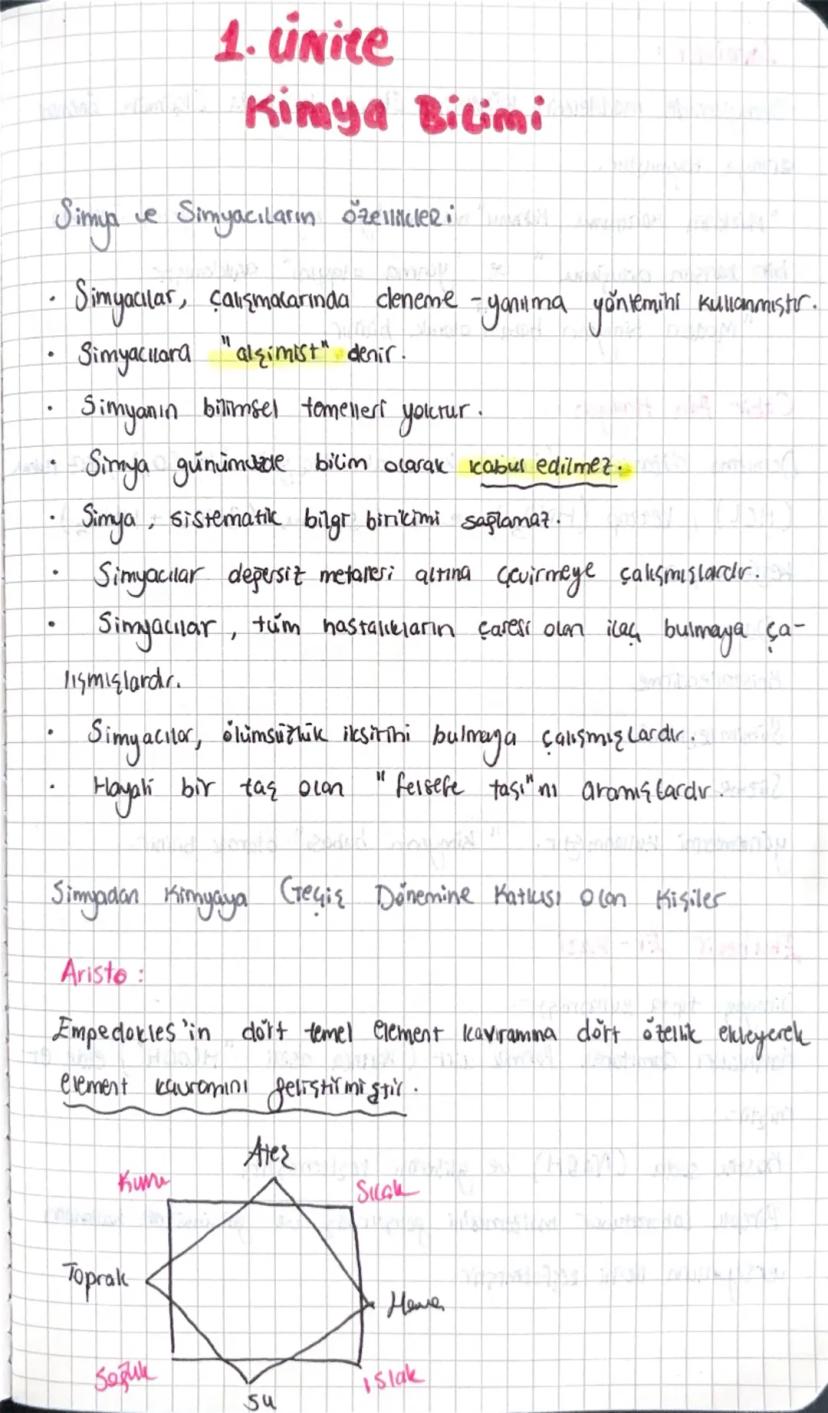 1. Ünite
Kimya Bilimi
Simya ve Simyacıların Özellikleri
• Simyacılar, çalışmalarında deneme-yanılma yöntemini kullanmıştır.
• Simyacılara "alşimist" denir.
• Simyanın bilimsel temelleri yoktur.
• Simya günümüzde bilim olarak kabul edilmez.
• Simya, sistematik bilgi birikimi sağlamaz.
• Simyacılar değersiz metalleri altına çevirmeye çalışmışlardır.
• Simyacılar, tüm hastalıkların çaresi olan ilaç bulmaya ça-
lışmışlardır.
• Simyacılar, ölümsüzlük iksirini bulmaya çalışmışlardır.
• Hayali bir taş olan "felsefe taşı"nı aramışlardır.
Simyadan Kimyaya Geçiş Dönemine Katkısı Olan Kişiler
Aristo:
Empedokles'in dört temel element kavramına dört özellik ekleyerek
element kavramını geliştirmiştir.
Ateş
Kuru Sıcak
Toprak Hava
Soğuk Islak
Su